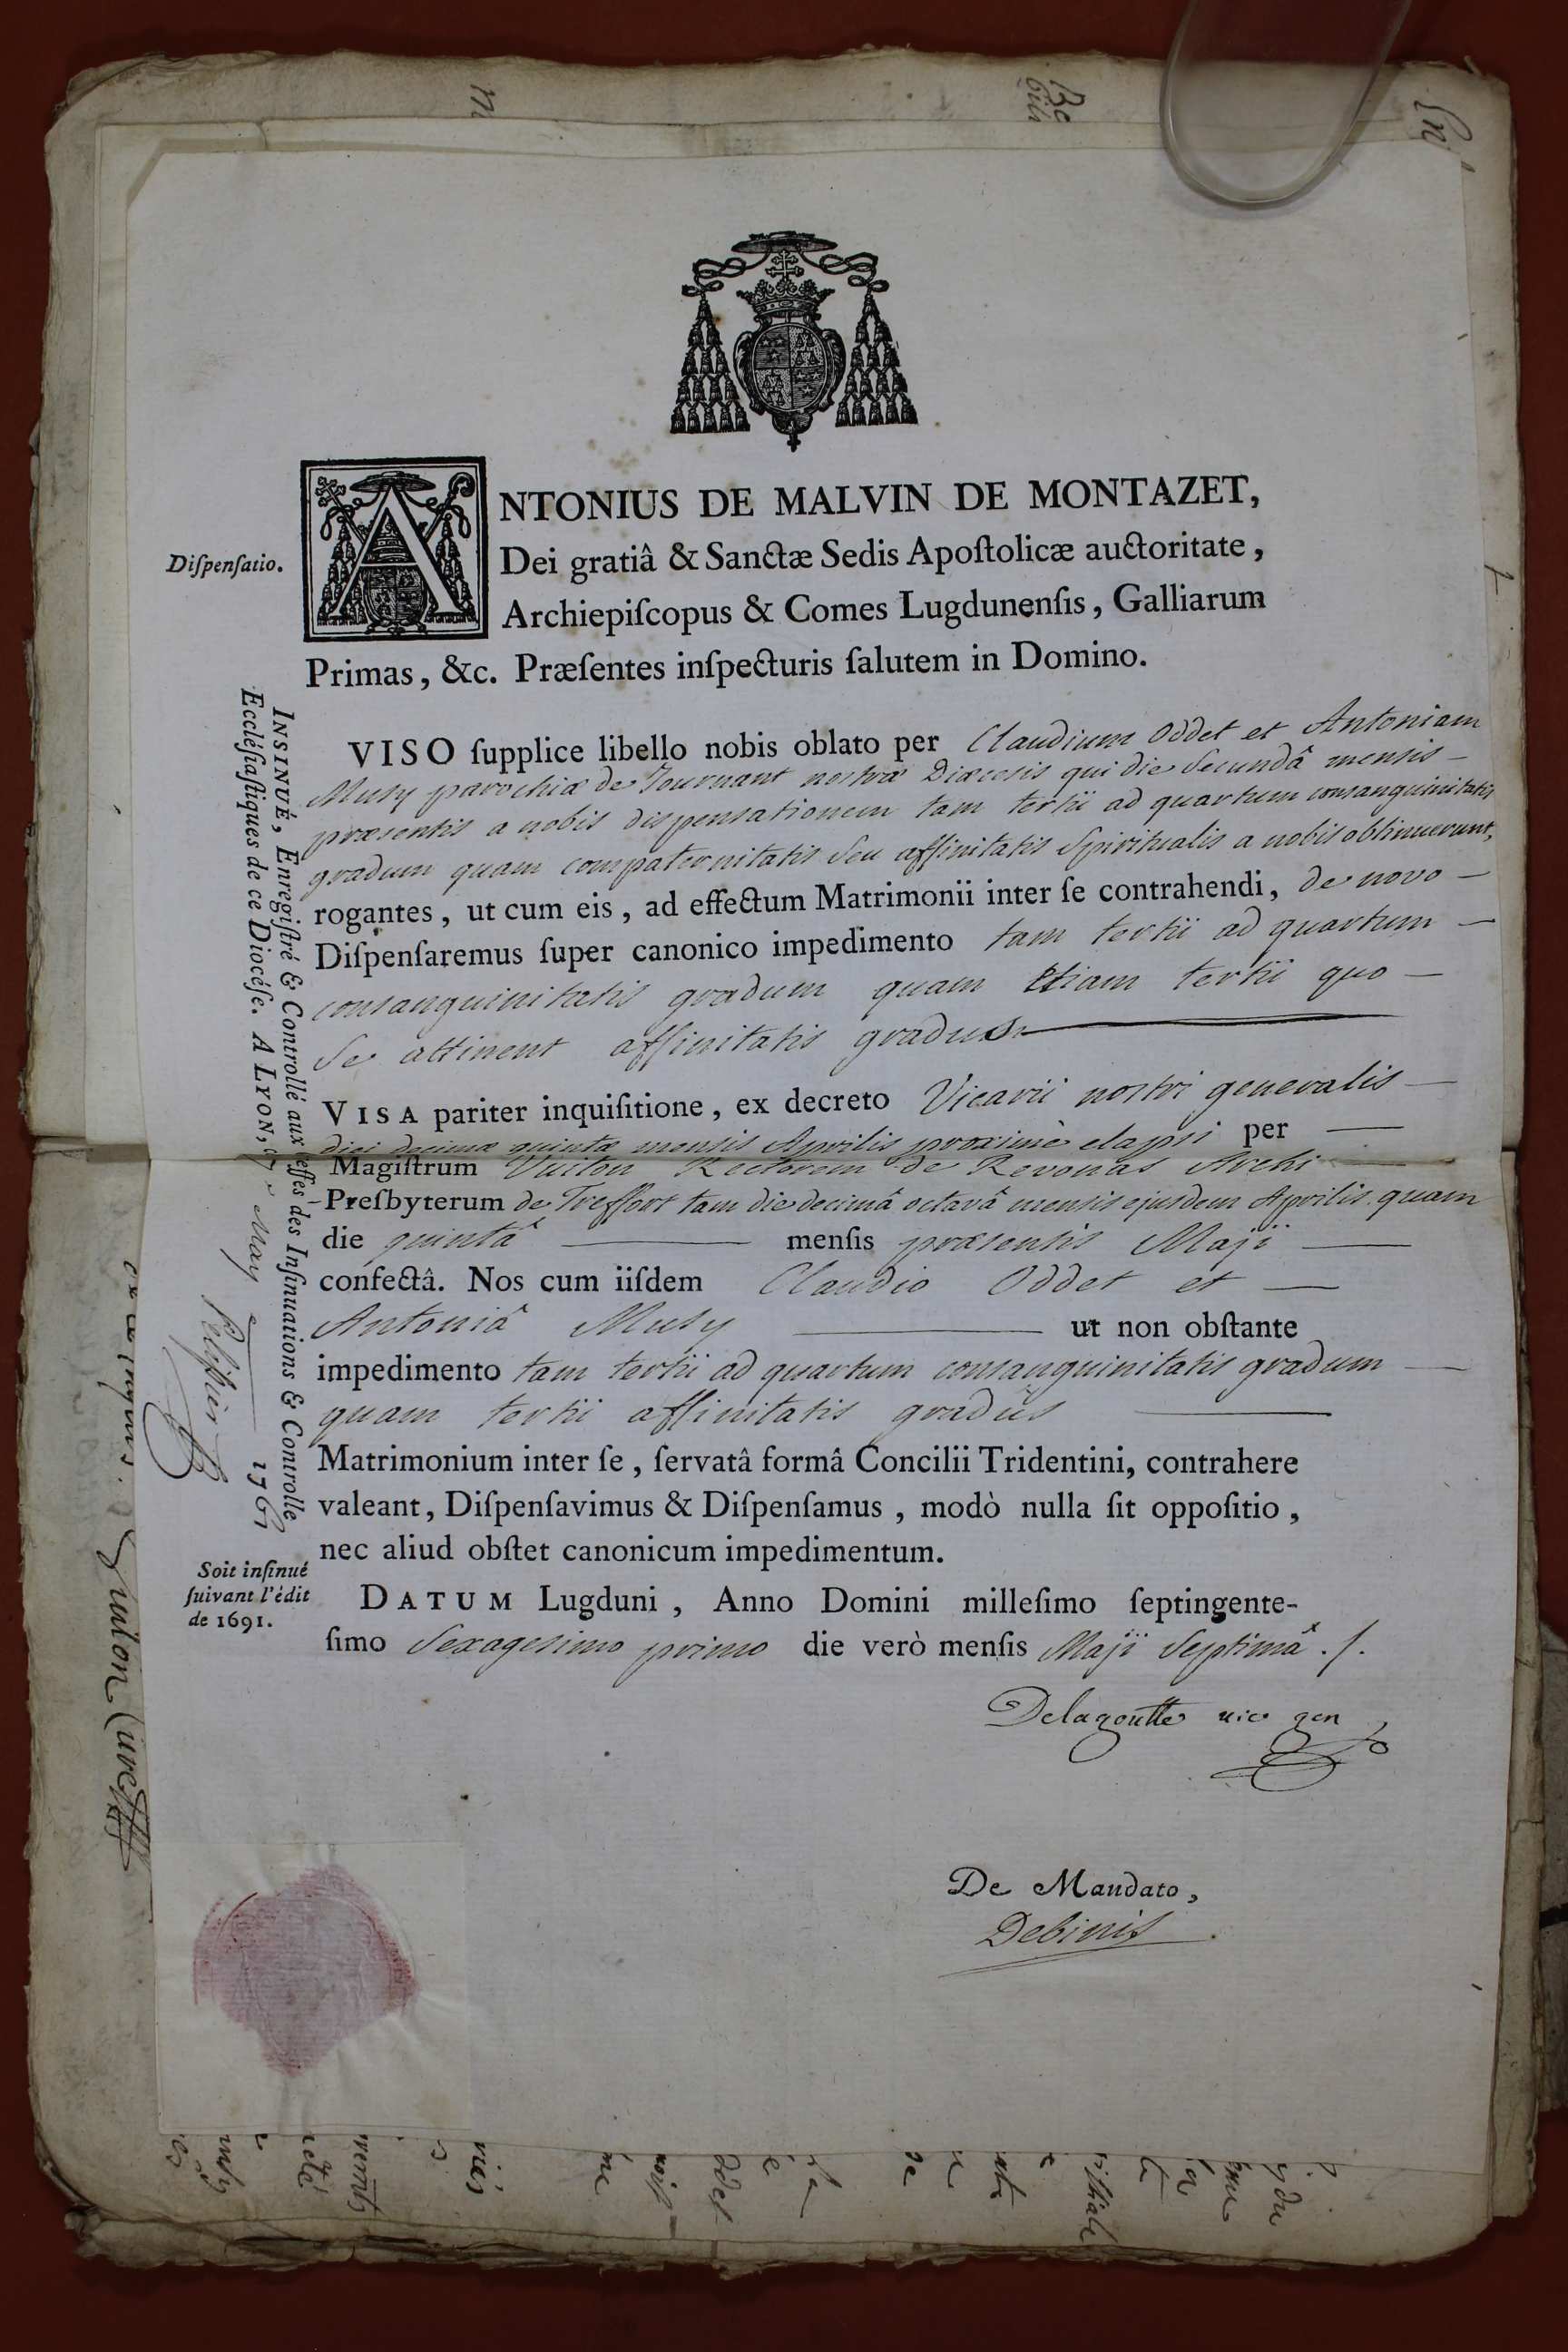 ANTONIUS DE MALVIN DE MONTAZET,
Dei gratiâ & Sanctæ Sedis Apoſtolicæ auctoritate,
Archiepiſcopus & Comes Lugdunenſis, Galliarum
Primas, &c. Præſentes inſpecturis ſalutem in Domino.
Diſpenſatio.
VISO ſupplice libello nobis oblato per Claudium Oddet et Antoniam
Musy parochiæ de Journant nostræ Diœcesis qui die Secundâ mensis
præsentis a nobis dispensationem tam tertii ad quartum consanguinitatis
gradum quam compaternitatis Seu affinitatis Spiritualis a nobis obtinuerunt,
rogantes, ut cum eis, ad effectum Matrimonii inter ſe contrahendi, de novo
Diſpenſaremus ſuper canonico impedimento tam tertii ad quartum
consanguinitatis gradum quam Etiam tertii quo
Se attinent affinitatis gradus
VISA pariter inquiſitione, ex decreto Vicarii nostri generalis
diei decimæ quintæ mensis Aprilis proximè elapsi per
Magiſtrum Rectorem de Revonas Archi
Preſbyterum de Treffort tam die decimâ octavâ mensis ejusdem Aprilis quam
die quintâ menſis præsentis Maji
confectâ. Nos cum iiſdem Claudio Oddet et
Antoniâ Musy ut non obſtante
impedimento tam tertii ad quartum consanguinitatis gradum
quam tertii affinitatis gradûs
Matrimonium inter ſe, ſervatâ formâ Concilii Tridentini, contrahere
valeant, Diſpenſavimus & Diſpenſamus, modò nulla ſit oppoſitio,
nec aliud obſtet canonicum impedimentum.
DATUM Lugduni, Anno Domini milleſimo ſeptingente-
ſimo Sexagesimo primo die verò menſis Maji Septimâ ./.
Delagoutte vic gen
De Mandato,
Debinis
INSINUÉ, Enregiſtré & Controllé aux Greffes des Inſinuations & Controlle
Eccléſiaſtiques de ce Diocéſe. A LYON, ce 7e May 1761
Soit inſinué
ſuivant l'édit
de 1691.